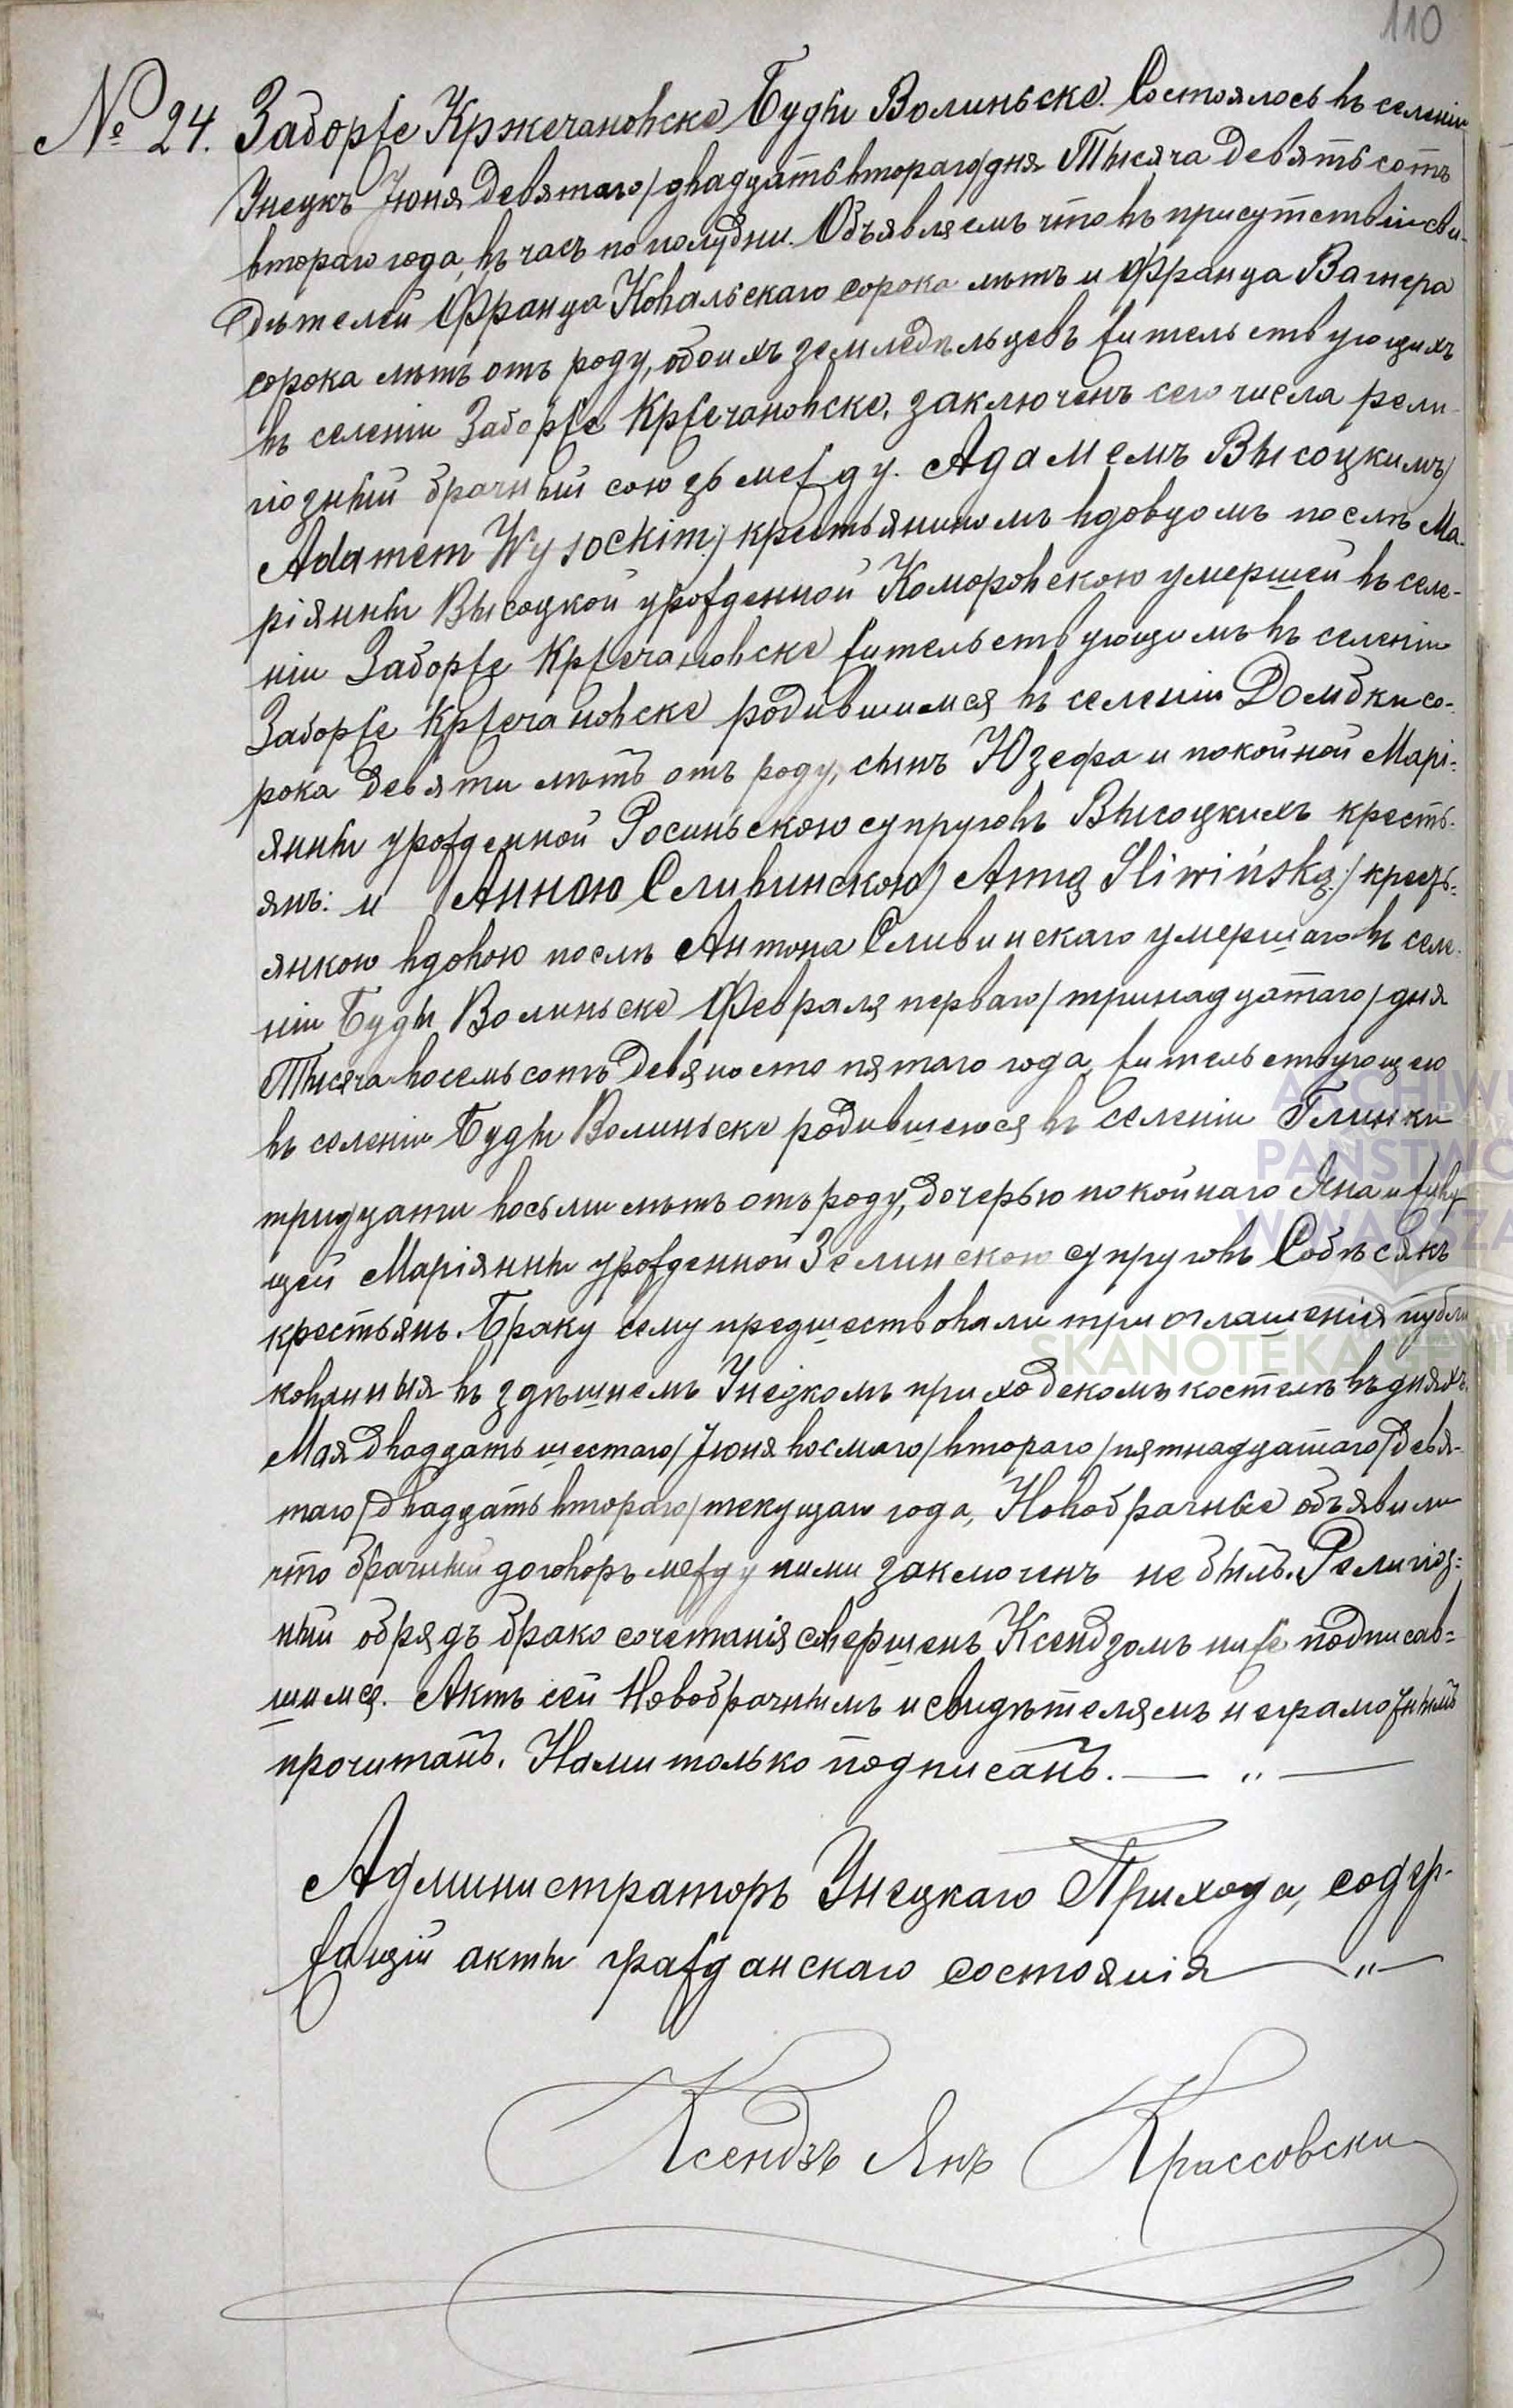 110
№ 24. Заборже Кржечановске Буды Волиньске. Состоялось въ селеніи
Унецкъ Іюня девятаго/двадцать втораго/дня Тысяча девятьсотъ
втораго года, въ часъ по полудни. Объявляемъ что въ присутствіи сви-
дѣтелей Франца Ковальскаго сорока лѣтъ и Франца Вагнера
сорока лѣтъ отъ роду, обоихъ земледѣльцевъ жительствующихъ
въ селеніи Заборже Кржечановске, заключенъ сего числа рели-
гіозный брачный союзъ между. Адамемъ Высоцкимъ/
Adamem Wysockim:/ крестьяниномъ вдовцомъ послѣ Ма-
ріянны Высоцкой урожденной Коморовскою умершей въ селе-
ніи Заборже Кржечановске жительствующимъ въ селеніи
Заборже Кржечановске родившимся въ селеніи Домбки со-
рока девяти лѣтъ отъ роду, сынъ Юзефа и покойной Марі-
янны урожденной Росиньскою супруговъ Высоцкихъ кресть-
янъ: и Анною Сливинскою/ Anną Sliwińską:/ кресть-
янкою вдовою послѣ Антона Сливинскаго умершаго въ селе-
ніи Буды Волиньске Февраля перваго/тринадцатаго/дня
Тысяча восемьсотъ девяносто пятаго года, жительствующею
въ селеніи Буды Волиньске родившеюся въ селеніи Глинки
тридцати восьми лѣтъ отъ роду, дочерью покойнаго Яна и живу
щей Маріянны урожденной Зелинскою супруговъ Собѣсякъ
крестьянъ. Браку сему предшествовали три оглашенія публи
кованныя въ здѣшнемъ Унецкомъ приходскомъ костелѣ въ дняхъ.
Мая двадцать шестаго/Іюня восмаго/втораго/пятнадцатаго/девя-
таго/двадцать втораго/текущаго года, Новобрачные объявили
что брачный договоръ между ними заключенъ не былъ. Религіоз-
ный обрядъ бракосочетанія совершенъ Ксендзомъ ниже подписав-
шимся. Актъ сей Новобрачнымъ и свидѣтелямъ неграмотнымъ
прочитанъ. Нами только подписанъ. — „ —
Администраторъ Унецкаго Прихода, содер-
жащій акты гражданскаго состоянія — „ —
Ксендзъ Янъ Крассовски
ARCHIWU
PAŃSTWO
W WARSZA
SKANOTEKA.GEN